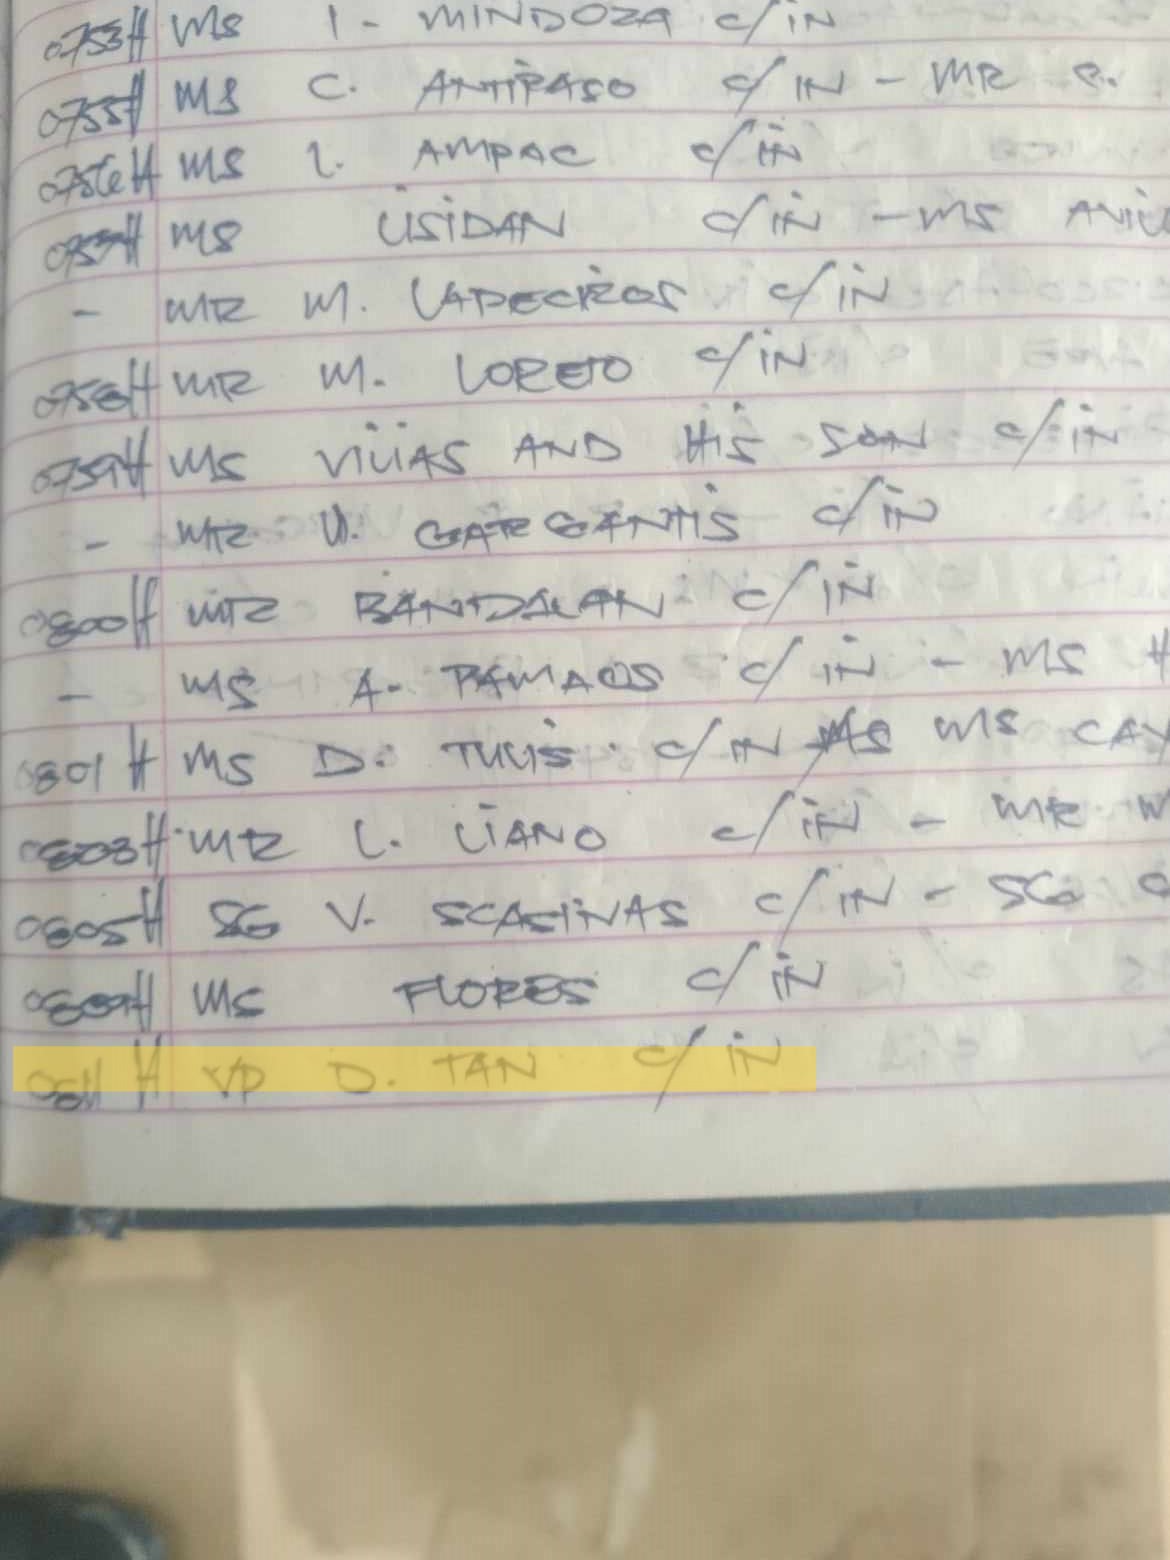 0753H MS I - MINDOZA C/IN
0755H MS C. ANTIPASO C/IN - MR
0756H MS L. AMPAC C/IN
MS LISIDAN C/IN - MS
- MR M. LADECIROS C/IN
0758H MR M. LORETO C/IN
0759H MS VILLAS AND HIS SON C/IN
- MR U. GARGANTIS C/IN
0800H MR BANDALAN C/IN
- MS A- PAMAOS C/IN - MS
0801H MS D. TULIS C/IN MS MS CAY
0803H MR L. LIANO C/IN - MR
0805H SG V. SCASINAS C/IN - SG
MS FLORES C/IN
0811H VP D. TAN C/IN